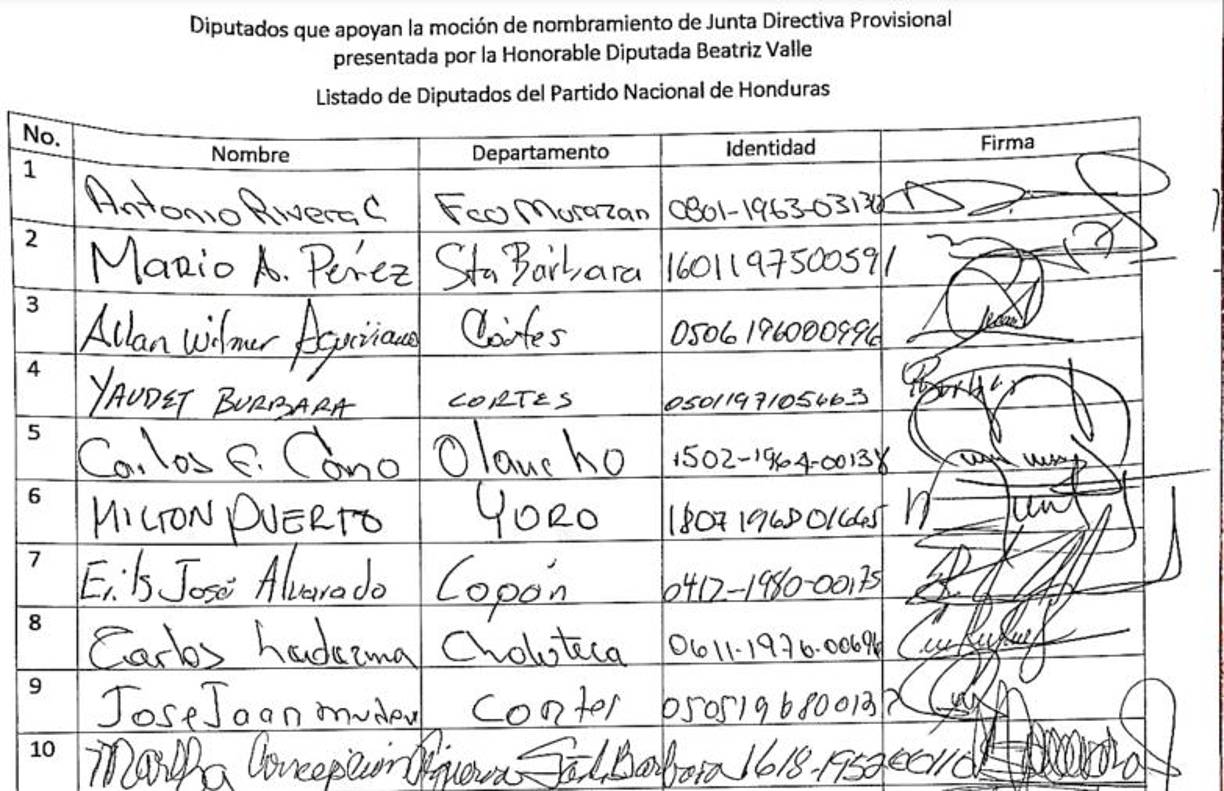 Diputados que apoyan la moción de nombramiento de Junta Directiva Provisional
presentada por la Honorable Diputada Beatriz Valle
Listado de Diputados del Partido Nacional de Honduras
No. Nombre Departamento Identidad Firma
1 Antonio Rivera C Fco Morazan 0801-1963-03138
2 Mario A. Pérez Sta Bárbara 1601197500591
3 Allan Wilmer Cortes 0506196000996
4 YAUDET BURBARA CORTES
5 Carlos F. Cano Olancho 1502-1964-00138
6 MILTON PUERTO YORO 1807196801665
7 José Alvarado Copán 0412-1980-00175
8 Carlos Ledezma Choluteca 0611-1976-00696
9 Jose Jaan Cortes
10 Martha Concepcion Figueroa Sta. Barbara